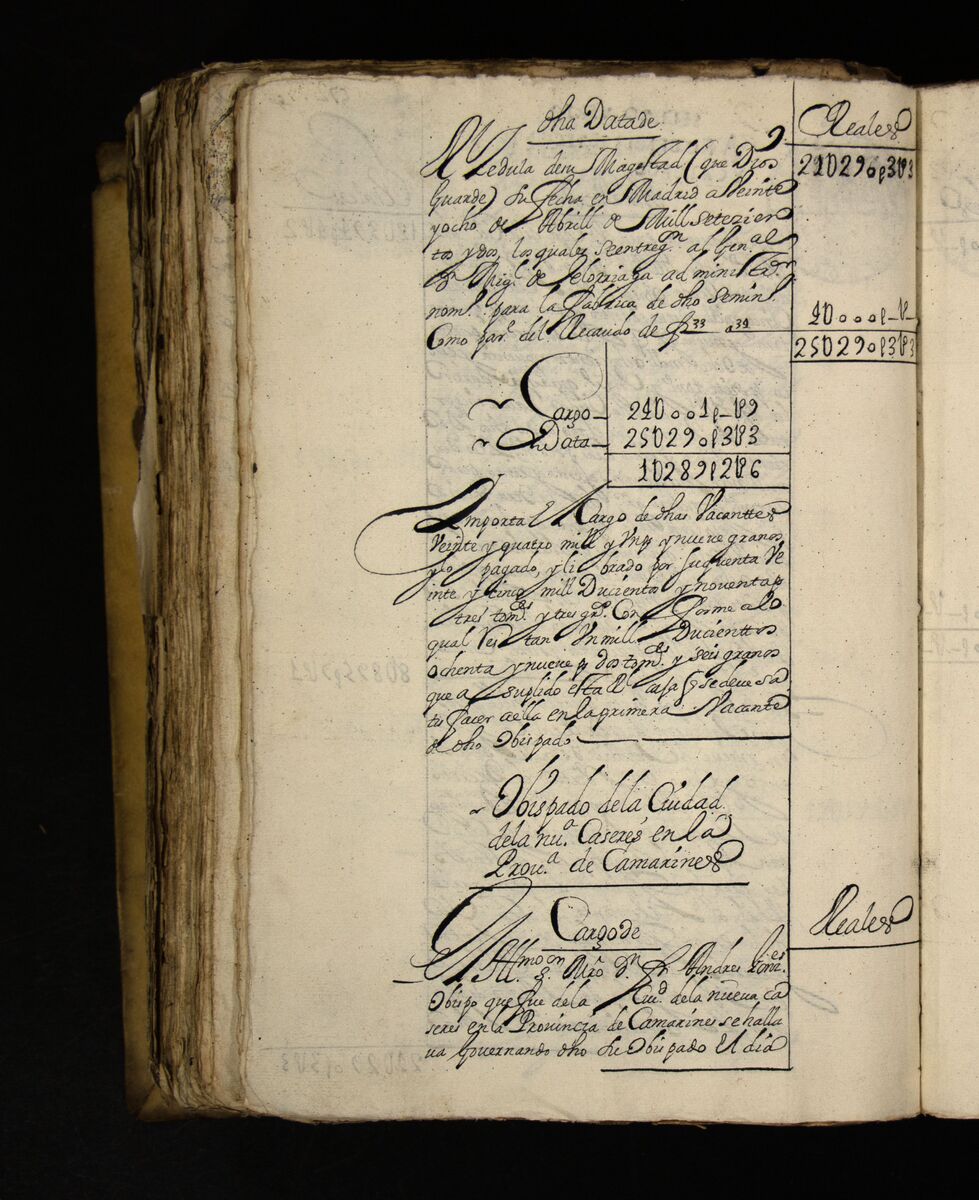 dha Data de
Reales
Rl Zedula de su Magestad (que Dios
21U290p3U3
Guarde) su fecha en Madrid a Veinte
y ocho de Abrill de Mill Setezien
tos y dos, los quales se entregn. al Genal.
Dn Migl. de Elorriaga administrdor.
nomd. para la Fabrica de dho Seminº.
4U000p_U_
Como pare. del Recaudo de f 33 a 34
25U290p3U3
Cargo_ 24U001p_U9
Data_ 25U290p3U3
1U289p2U6
Ymporta El Cargo de dhas Vacanttes
Veinte y quatro mill y Un ps y nueve granos
y lo pagado, y librado por su quenta Ve
inte y cinco mill Ducientos y noventa ps
tres tomes. y tres grs. Conforme a lo
qual Restan Un mill Ducienttos
ochenta y nueve ps dos tomes. y seis granos
que a suplido esta Rl caja q se deve sa
tisfacer a ella en la primera Vacante
de dho Obispado
Obispado de la Ciudad
de la nua. Caseres en la
Prova. de Camarines
Cargo de
Reales
El Illmo Sn. Mro Dn. Fr Andres Gonzes.
Obispo que fue de la Ciud. de la nueva Ca
seres en la Provincia de Camarines se halla
va governando dho su Obispado El dia